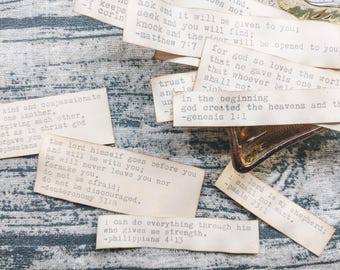 ask and it will be given to you;
seek and you will find;
knock and the door will be opened to you
-matthew 7:7
for god so loved the world
that he gave his one a
that whoever
shall
trust
in the beginning
god created the heavens and th
-genesis 1:1
kind and compassionate
one another,
each other,
as in christ god
the lord himself goes before you
and will be with you;
he will never leave you nor
forsake you.
do not be afraid;
do not be discouraged.
-deuteronomy 31:8
is my shepherd,
not want.
i can do everything through him
who gives me strength.
-philippians 4:13